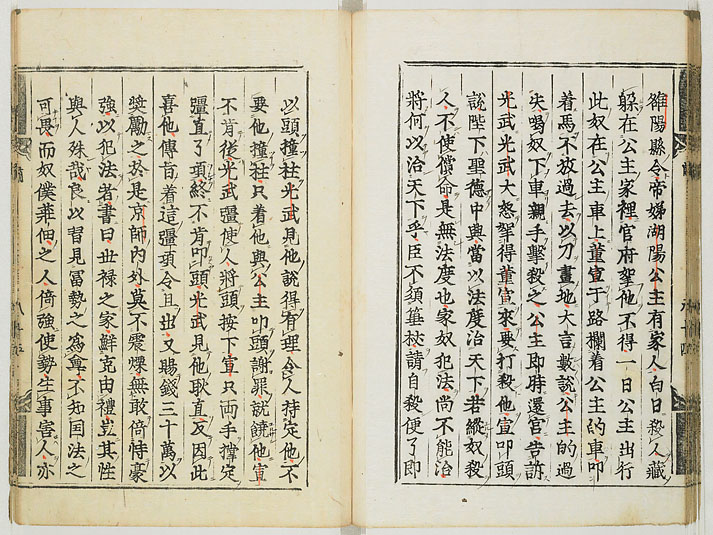 雒陽縣令帝娣湖陽公主有家人白日殺人藏
躱在公主家裡官府拏他不得一日公主出行
此奴在公主車上董宣于路攔着公主的車叩
着馬不放過去以刀畫地大言數說公主的過
失喝奴下車親手擊殺之公主即時還宮告訴
光武光武大怒拏得董宣來要打殺他宣叩頭
說陛下聖德中興當以法度治天下若縱奴殺
人不使償命是無法度也家奴犯法尚不能治
將何以治天下乎臣不須箠杖請自殺便了即
以頭撞柱光武見他說得有理令人持定他不
要他撞柱只着他與公主叩頭謝罪說饒他宣
不肯從光武彊使人將頭按下宣只兩手撑定
彊直了項終不肯叩頭光武見他耿直反因此
喜他傳旨着這彊項令且出又賜錢三十萬以
獎勵之於是京師內外莫不震慄無敢倚恃豪
強以犯法者書曰世禄之家鮮克由禮豈其性
與人殊哉良以習見冨勢之為尊不知国法之
可畏而奴僕莊佃之人倚強使勢生事害人亦